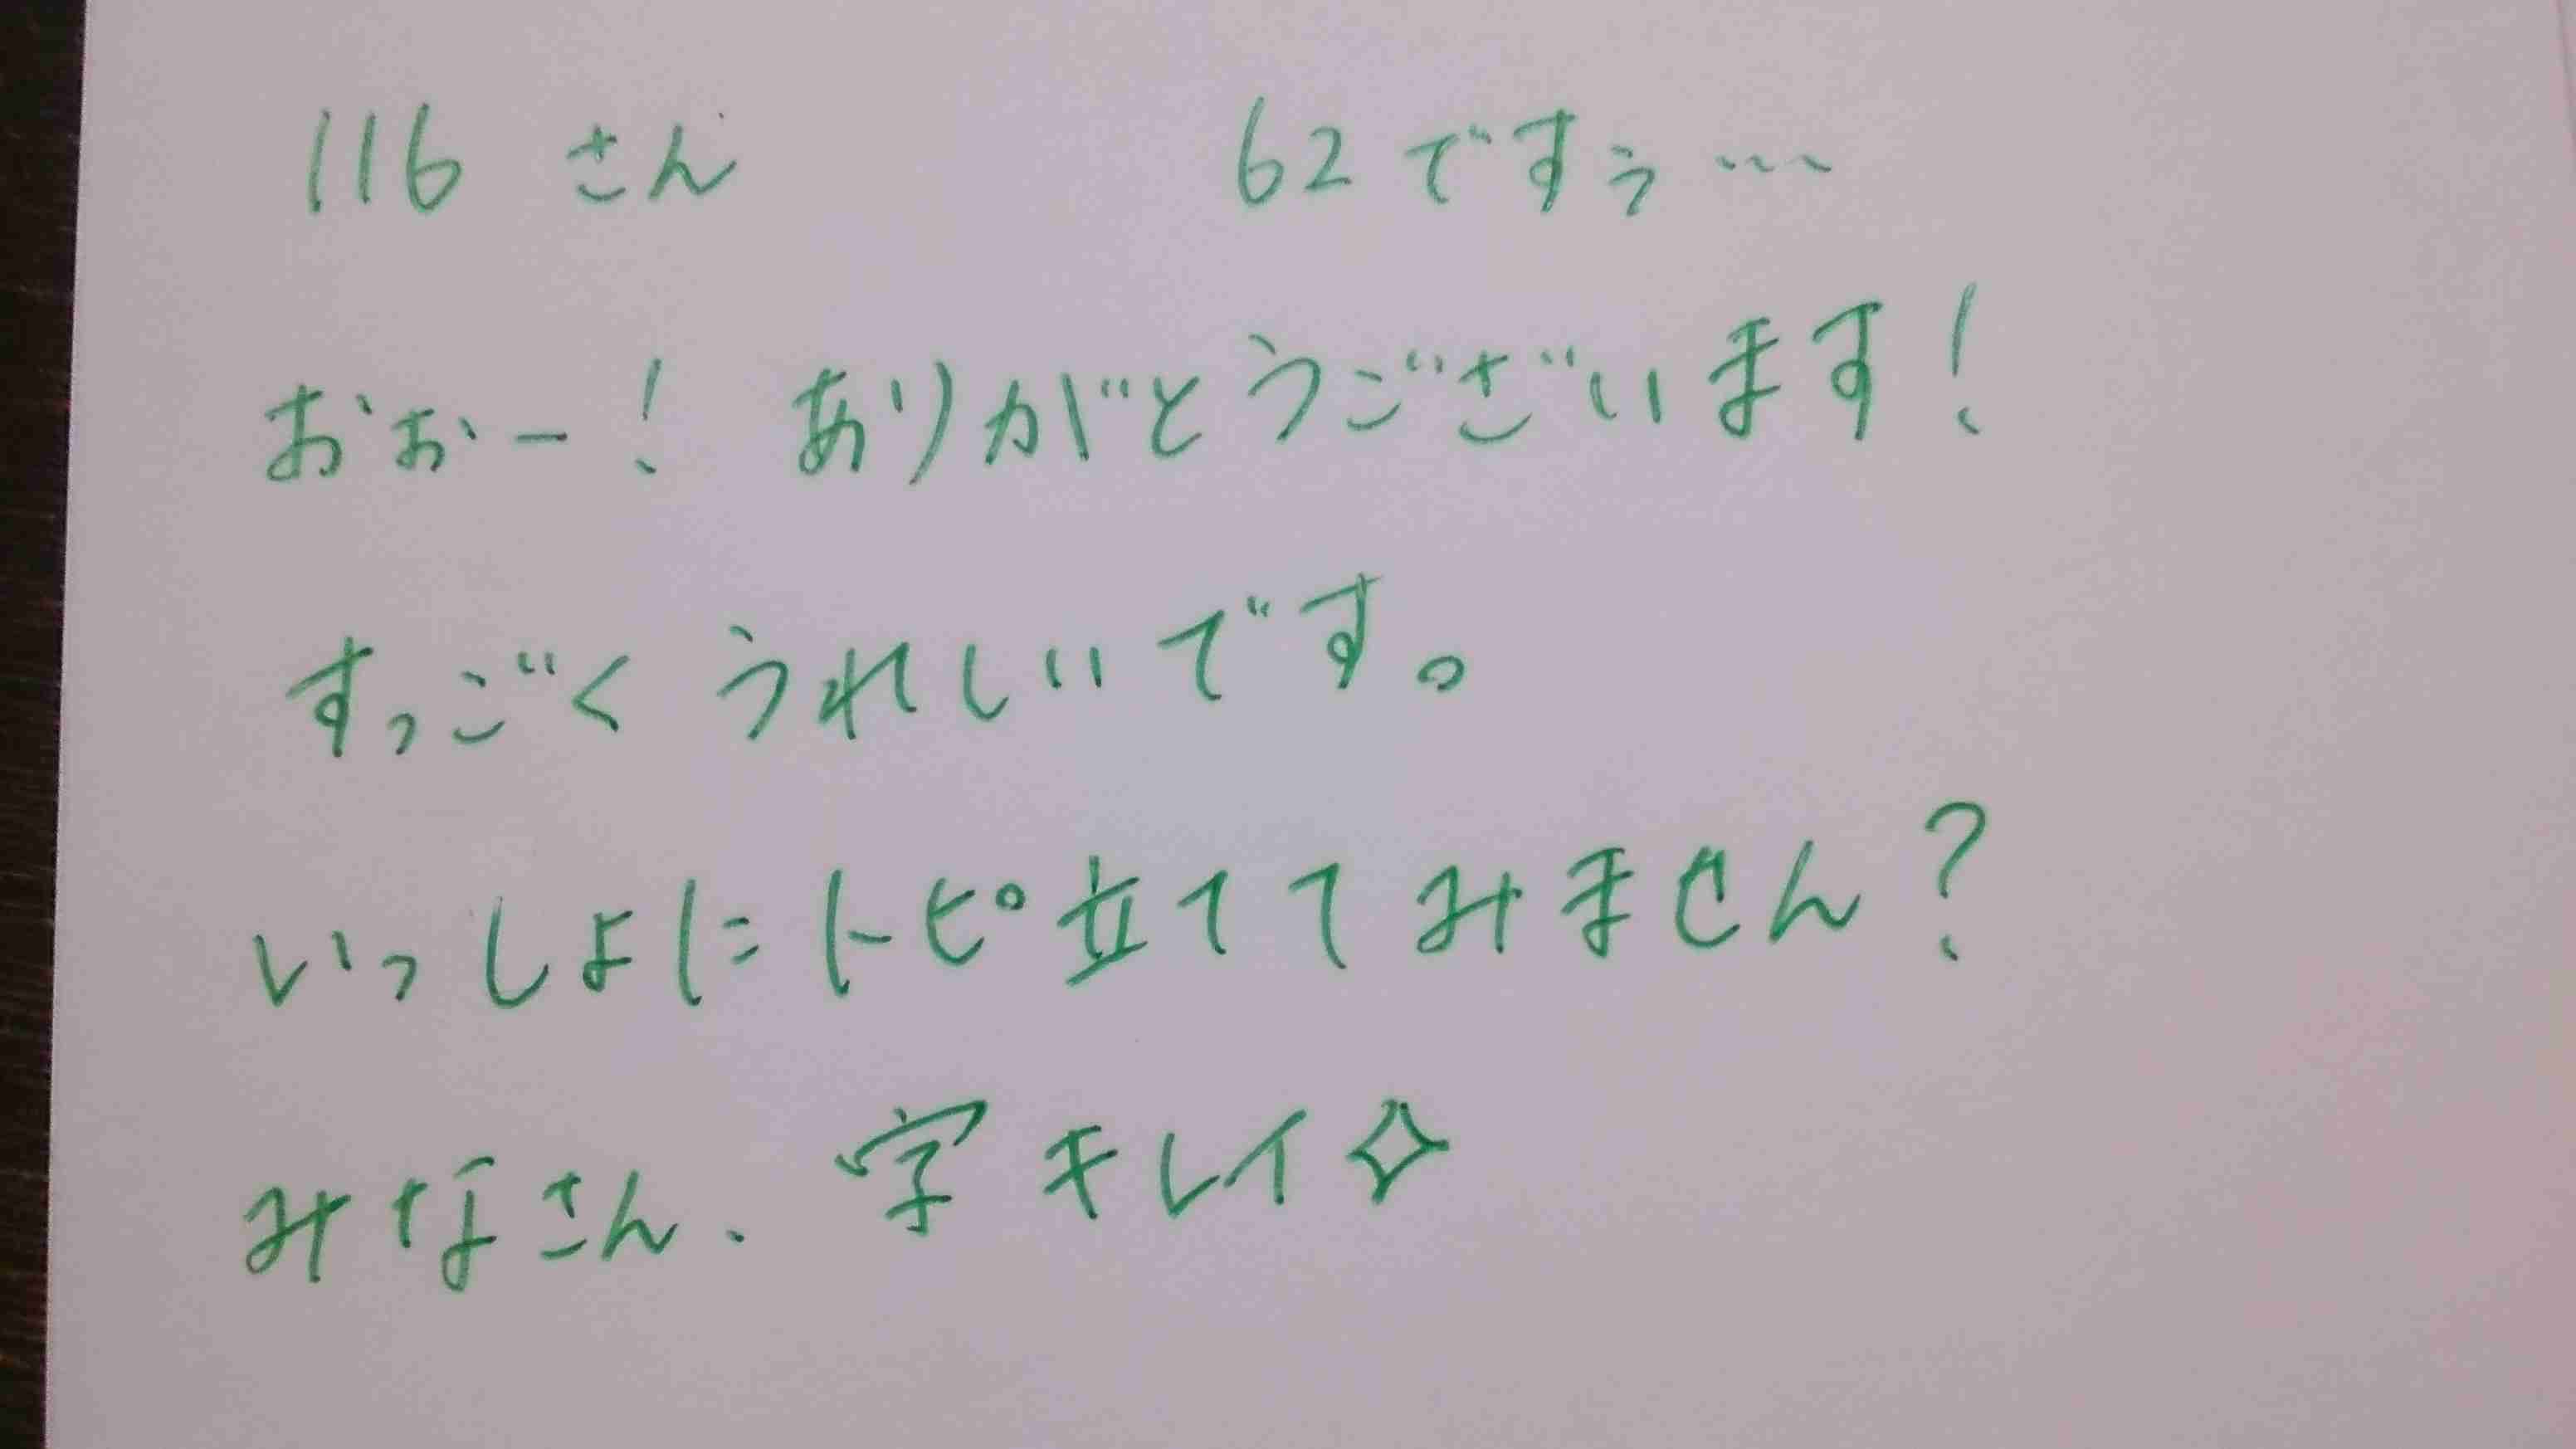 116 さん 62ですぅ…
おぉー！ ありがとうございます！
すっごく うれしいです。
いっしょにトピ立ててみませんか？
みなさん、字キレイ✧